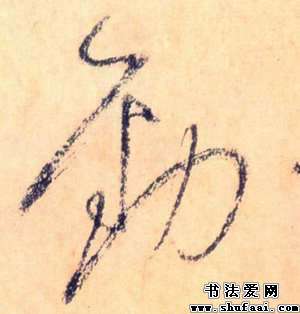 勤
书法爱网
www.shufaai.com